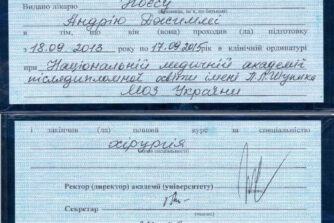 Видано лікарю
Андрію
про те, що він (вона) проходив (ла) підготовку
з 18.09.2013 року по 17.09.2015 в клінічній ординатурі
при Національній медичній академії
післядипломної освіти імені П.Л. Шупика
МОЗ України
і закінчив (ла) повний курс за спеціальністю
хірургія
Ректор (директор) академії (університету)
Секретар